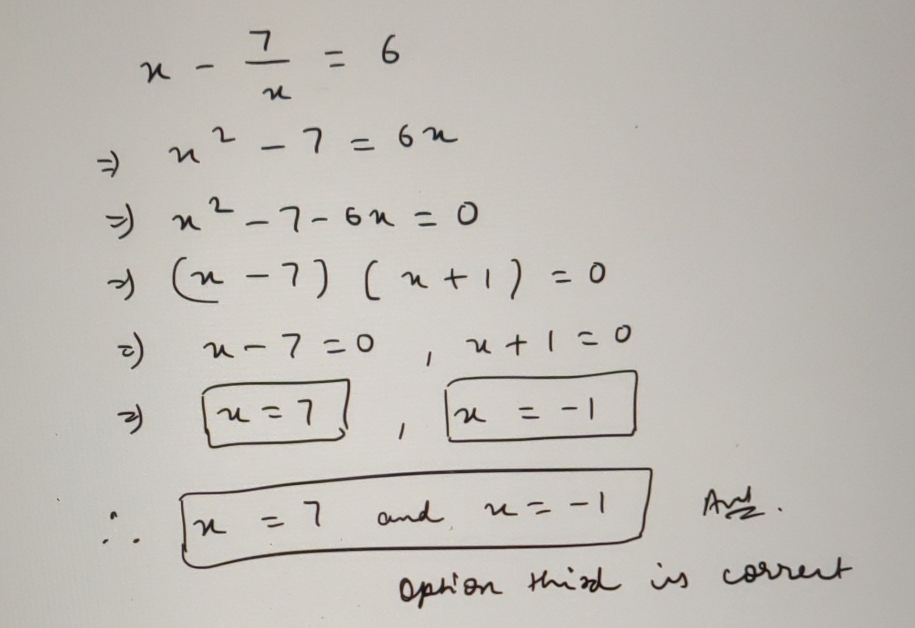 x - 7/x = 6
⇒ x² - 7 = 6x
⇒ x² - 7 - 6x = 0
⇒ (x - 7) (x + 1) = 0
⇒ x - 7 = 0 , x + 1 = 0
⇒ x = 7 , x = -1
∴ x = 7 and x = -1 Ans.
option third is correct